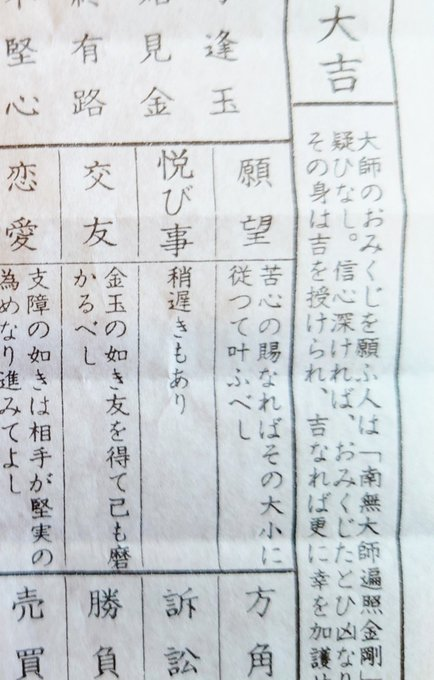 大吉
大師のおみくじを願ふ人は「南無大師遍照金剛」
疑ひなし。信心深ければ、おみくじたとひ凶なり
その身は吉を授けられ、吉なれば更に幸を加護せ
逢玉
見金
有路
堅心
願望
苦心の賜なればその大小に
従つて叶ふべし
悦び事
稍遅きもあり
交友
金玉の如き友を得て己も磨
かるべし
恋愛
支障の如きは相手が堅実の
為めなり進みてよし
方角
訴訟
勝負
売買